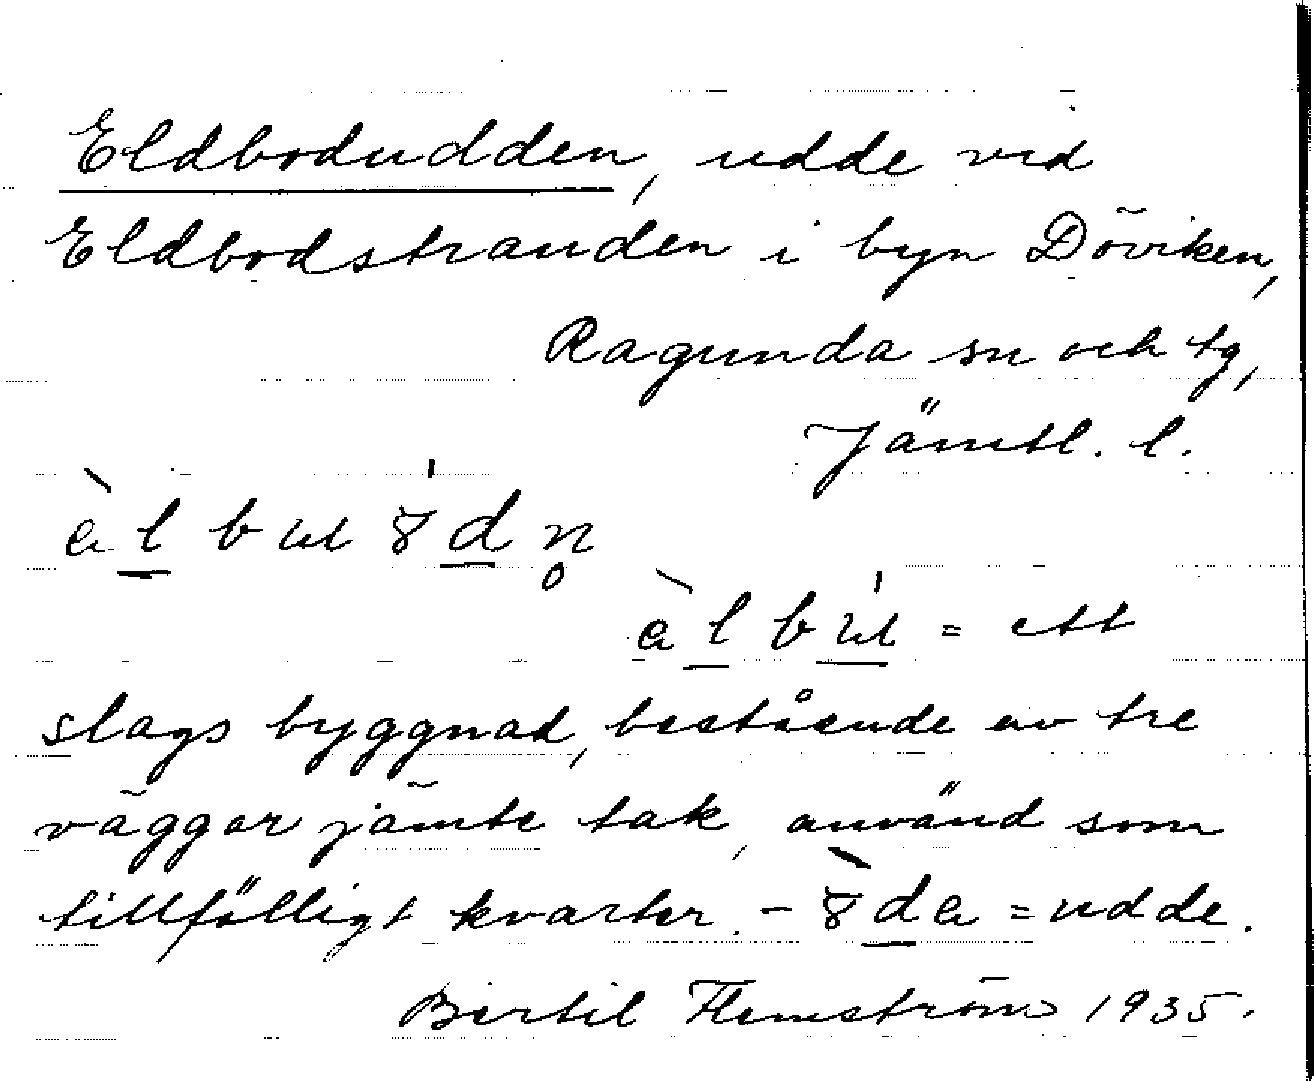 Eldbodudden, udde vid
Eldbodstranden i byn Döviken,
Ragunda sn och tg,
Jämtl. l.
slags byggnad, bestående av tre
väggar jämte tak, använd som
tillfälligt kvarter. - = udde.
= ett
Bertil Flemström 1935.